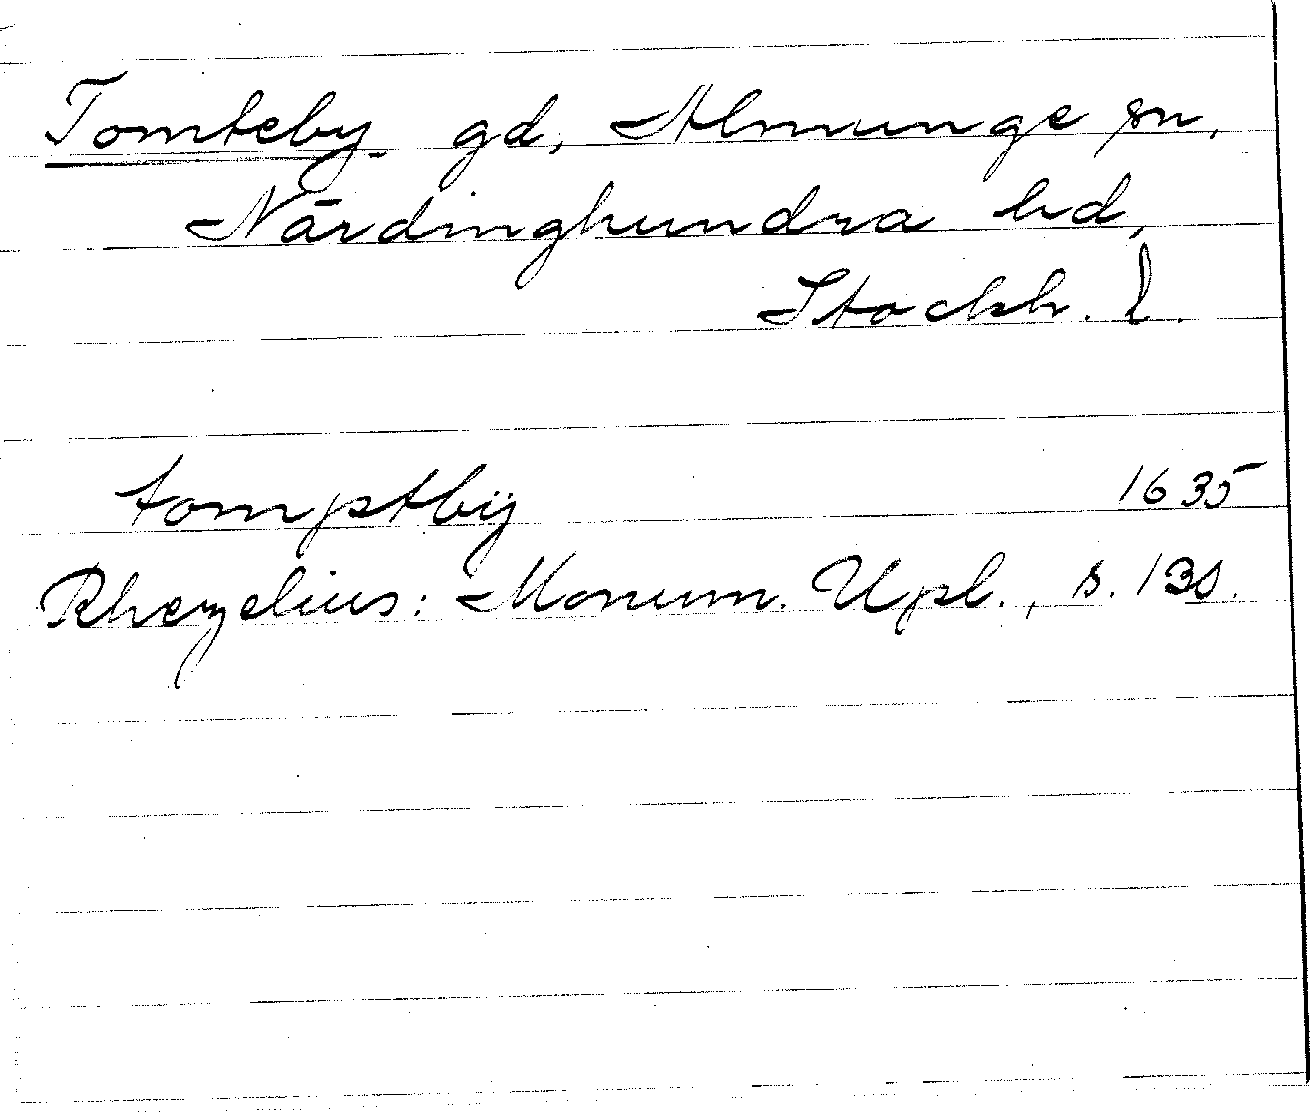 Tomteby gd, Almunge sn,
Närdinghundra hd,
Stockh. l.
tomptbÿ 1635
Rhezelius: Monum. Upl., s. 130.